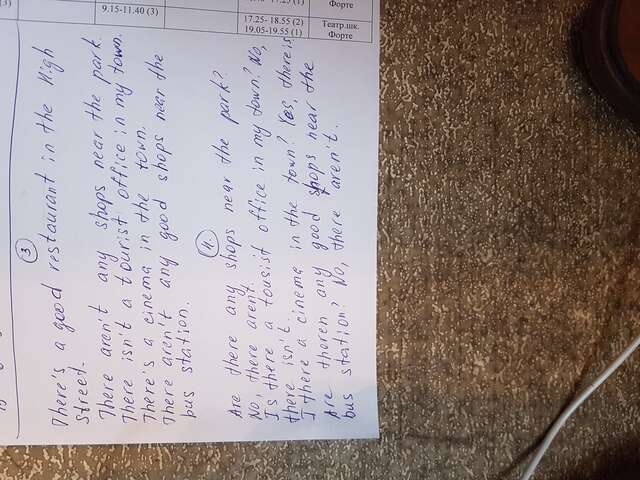 3
There's a good restaurant in the High
street.
There aren't any shops near the park.
There isn't a tourist office in my town.
There's a cinema in the town.
There aren't any good shops near the
bus station.
4.
Are there any shops near the park?
No, there arent.
Is there a tousist office in my town? No,
there isn't.
I there a cinema in the town? Yes, there is
Are thoren any good shops near the
bus station? No, there aren't.
9.15-11.40 (3)
17.25-18.55 (2)
19.05-19.55 (1)
Театр.шк.
Форте
Форте